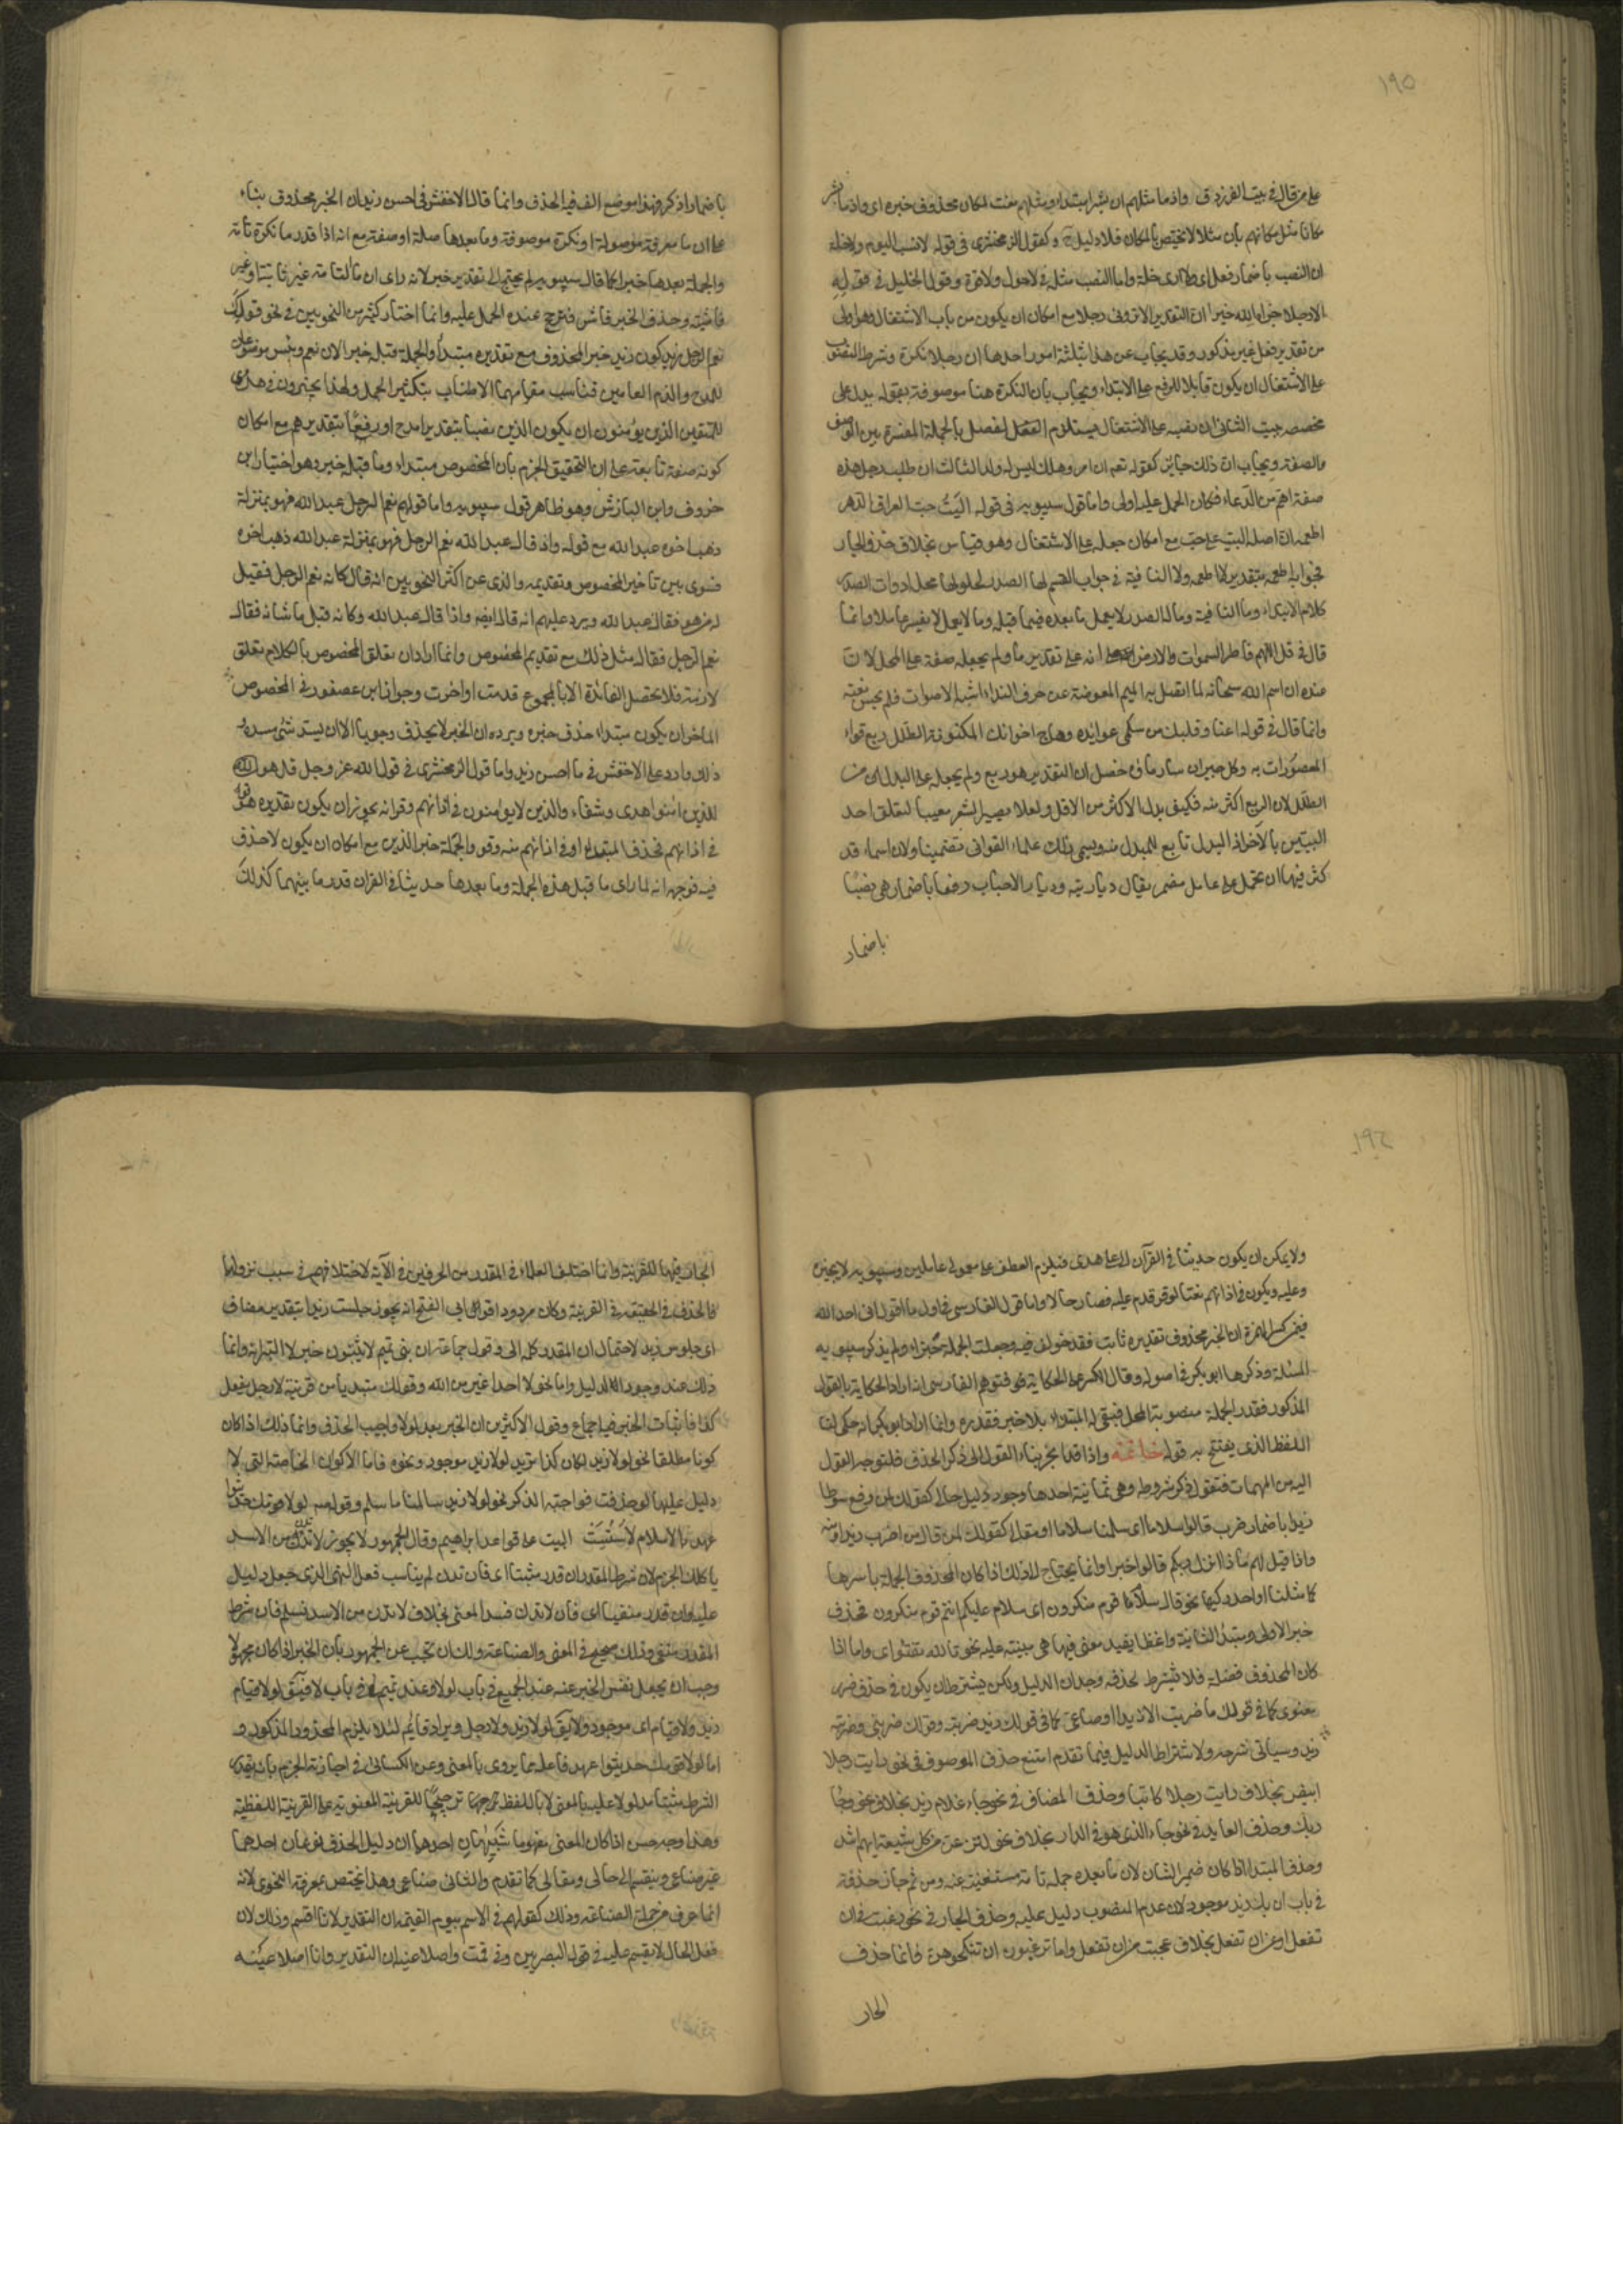 ١٩٥
على من قال في بيت الفرزدق واذ ما مثلهم ان بشرا مبتداء ومثلهم نعت لمكان محذوف خبره اى واذ ما بشر
مكانا مثل مكانهم بان مثلا لا يختص بالمكان فلا دليل ح وكقول الزمخشرى فى قوله لا نسب اليوم ولا خلة
ان النصب باضمار فعل اى ولا ارى خلة وانما النصب مثله فى لا حول ولا قوة وقول الخليل فى قوله
الا رجلا جزاه الله خيرا ان التقدير الا ترونى رجلا مع امكان ان يكون من باب الاشتغال وهو اولى
من تقدير فعل غير مذكور وقد يجاب عن هذا بثلثة امور احدها ان رجلا نكرة وشرط المنصوب
على الاشتغال ان يكون قابلا للرفع على الابتداء ويجاب بان النكرة هنا موصوفة بقوله يدل على
محصصة تبيت الثانى ان نصبه على الاشتغال يستلزم الفصل بالجملة المفسرة بين الموصوف
والصفة ويجاب ان ذلك جايز كقوله تعم ان امرؤ هلك ليس له ولد الثالث ان طلب رجل هذه
صفته اهم من الدعاء فكان الحمل عليه اولى واما قول سيبويه فى قوله اليت حب العراق الدهر
اطعمه ان اصله اليت على حب مع امكان جعله على الاشتغال وهو قياس بخلاف حذف الجار
فجوابه اطعمه بتقدير لا اطعمه ولا النافية فى جواب القسم لها الصدر لحلولها محل ادوات الصدر
كلام الابتداء وما النافية وما له الصدر لا يعمل ما بعده فيما قبله وما لا يعمل لا يفسر عاملا وانما
قال فى قل اللهم فاطر السموات والارض انه على تقدير يا ولم يجعله صفة على المحل لان
عنده ان اسم الله سبحانه لما اتصل به الميم المعوضة عن حرف النداء اشبه الاصوات فلم يجس نعته
وانما قال فى قوله اعتاد قلبك من سلمى عوائده وهاج اخوانك المكنونة الطلل ربع قواء
المعصرات به وكل حيران سار ماؤه خضل ان التقدير هو ربع ولم يجعله على البدل من
الطلل لان الربع اكثر منه فكيف يبدل الاكثر من الاقل ولئلا يصير الشعر معيبا لتعلق احد
البيتين بالآخر اذ البدل تابع للمبدل منه ويسمى ذلك علماء القوافى تضمينا ولان اسماء قد
كثر فيها ان تحمل على عامل مضمر يقال ديار مية وديار الاحباب رفعا باضمار هى ونصبا
باضمار
باضمار اذكر فهذا موضع الف فيه الحذف وانما قال الاخفش فى ما احسن زيدان الخبر محذوف بناء
على ان ما معرفة موصولة او نكرة موصوفة وما بعدها صلة او صفة مع انه اذا قدر ما نكرة تامة
والجملة بعدها خبرا كما قال سيبويه لم يحتج الى تقدير خبر لانه راى ان ما التامة غير ثابتة او غير
فاشية وحذف الخبر فاش فترجح عنده الحمل عليه وانما اختار كثير من النحويين فى نحو قولك
نعم الرجل زيد كون زيد خبر المحذوف مع تقديره مبتدأ والجملة قبله خبرا لان نعم وبئس موضوعان
للمدح والذم العامين فناسب مقامهما الاطناب بتكثير الجمل ولهذا يجيزون فى هدى
للمتقين الذين يؤمنون ان يكون الذين نصبا بتقدير امدح او رفعا بتقدير هم مع امكان
كونه صفة تابعة على ان التحقيق الجزم بان المخصوص مبتداء وما قبله خبر وهو اختيار ابن
خروف وابن الباذش وهو ظاهر قول سيبويه واما قولهم نعم الرجل عبد الله فهو بمنزلة
ذهب اخوه عبد الله مع قوله واذ قال عبد الله نعم الرجل فهو بمنزلة عبد الله ذهب اخوه
فسوى بين تاخير المخصوص وتقديمه والذى غر اكثر النحويين انه قال كانه نعم الرجل فقيل
له من هو فقال عبد الله ويرد عليهم انه قال ايضا واذا قال عبد الله وكانه قيل ما شانه فقال
نعم الرجل فقال مثل ذلك مع تقديم المخصوص وانما اراد ان تعلق المخصوص بالكلام تعلق
لازم فلا تحصل الفائدة الا بالمجموع قدمت او اخرت وجوز ابن عصفور فى المخصوص
الماخر ان يكون مبتداء حذف خبره ويرده ان الخبر لا يحذف وجوبا الا ان يسد شئ مسده
ذلك وارد على الاخفش فى ما احسن زيد واما قول الزمخشرى فى قول الله عز وجل قل هو
للذين امنوا هدى وشفاء والذين لا يؤمنون فى اذانهم وقرانه يجوز ان يكون تقديره هو
فى اذانهم فحذف المبتدا او فى اذانهم منه وقر والجملة خبر الذين مع امكان ان يكون لا حذف
فيه فوجهه انه لما راى ما قبل هذه الجملة وما بعدها حديثا فى القران قدر ما بينهما كذلك
١٩٦
ولا يمكن ان يكون حديثا فى القرآن الا على هدى فيلزم العطف على معمولى عاملين وسيبويه لا يجيزه
وعليه ويكون فى اذانهم نعتا لوقر قدم عليه فصار حالا واما قول الفارسى فى اول ما اقول انى احمد الله
فيمن كسر الهمزة ان الخبر محذوف تقديره ثابت فقد خولف فيه وجعلت الجملة خبرا ولم يذكر سيبويه
المسئلة وذكرها ابو بكر فى اصوله وقال الكسر على الحكاية فتوهم الفارسى انه اراد الحكاية بالقول
المذكور فقدر الجملة منصوبة المحل فبقى له المبتداء بلا خبر فقدره وانما اراد ابو بكر انه حكى لنا
اللفظ الذى يفتتح به قوله خاتمة واذا قد انجر بنا القول الى ذكر الحذف فلنوجه القول
اليه من المهمات فنقول ذكر شروطه وهى ثمانية احدها وجود دليل حالى كقولك لمن رفع سوطا
زيدا باضمار ضرب قالوا سلاما اى سلمنا سلاما او مقالى كقولك لمن قال من اضرب زيدا ومنه
واذا قيل لهم ماذا انزل ربكم قالوا خيرا وانما يحتاج الى ذلك اذا كان المحذوف الجملة باسرها
كما مثلنا او احد ركنيها نحو قال سلام قوم منكرون اى سلام عليكم انتم قوم منكرون فحذف
خبر الاولى ومبتدأ الثانية او لفظا يفيد معنى فيها هى مبنية عليه نحو تالله تفتئوا اى واما اذا
كان المحذوف فضلة فلا يشترط لحذفه وجدان الدليل ولكن يشترط ان يكون فى حذفه ضرر
معنوى كما فى قولك ما ضربت الا زيدا او صناعى كما فى قولك زيد ضربته وقولك ضربنى وضربته
زيد وسياتى شرحه ولاشتراط الدليل فيما تقدم امتنع حذف الموصوف فى نحو رايت رجلا
ابيض بخلاف رايت رجلا كاتبا وحذف المضاف فى نحو جاء غلام زيد بخلاف نحو وجاء
ربك وحذف العايد فى نحو جاء الذى هو فى الدار بخلاف نحو لننزعن من كل شيعة ايهم اشد
وحذف المبتدا اذا كان ضمير الشان لان ما بعده جملة تامة مستغنية عنه ومن ثم جاز حذفه
فى باب ان بك زيد موجود لان عدم المنصوب دليل عليه وحذف الجار فى نحو رغبت فى ان
تفعل او عن ان تفعل بخلاف عجبت من ان تفعل واما ترغبون ان تنكحوهن فانما حذف
الجار
الجار فيها للقرينة وانما اختلف العلماء فى المقدر من الحرفين فى الآية لاختلافهم فى سبب نزولها
فالحذف فى الحقيقة فى القرينة وكان مردودا قول ابى الفتح انه يجوز جلست زيدا بتقدير مضاف
اى جلوس زيد لاحتمال ان المقدر كلمة الى وقول جماعة ان بنى تميم لا يثبتون خبر لا التبرئة وانما
ذلك عند وجود الدليل واما نحو لا احد اغير من الله وقولك مبتديا من قرينة لا رجل يفعل
كذا فاثبات الخبر فيه اجماع وقول الاكثرين ان الخبر بعد لولا واجب الحذف وانما ذلك اذا كان
كونا مطلقا نحو لولا زيد لكان كذا تريد لولا زيد موجود ونحوه فاما الاكوان الخاصة التى لا
دليل عليها لو حذفت فواجبة الذكر نحو لولا زيد سالمنا ما سلم وقوله عم لولا قومك حديثوا
عهد بالاسلام لاسست البيت على قواعد ابراهيم وقال الجمهور لا يجوز لا تدن من الاسد
ياكلك الجزم لان شرط المقدر ان قدر مثبتا اى فان تدن لم يناسب فعل النهى الذى جعل دليل
عليه وان قدر منفيا اى فان لا تدن فسد المعنى بخلاف لا تدن من الاسد تسلم فان شرط
المقدر منفى وذلك صحيح فى المعنى والصناعة ولك ان تجيب عن الجمهور بان الخبر اذا كان مجهولا
وجب ان يجعل نفس الخبر عنه عند الجميع فى باب لولا وعند تميم فى باب لا فيق لولا قيام
زيد ولا قيام اى موجود ولا يق لولا زيد ولا رجل ويراد قائم لئلا يلزم المحذور المذكور و
اما لولا قومك حديثوا عهد فلعله مما يروى بالمعنى وعن الكسائى فى اجازته الجزم بانه يقدر
الشرط مثبتا مدلولا عليه بالمعنى لا باللفظ ترجيحا للقرينة المعنوية على القرينة اللفظية
وهذا وجه حسن اذا كان المعنى مفهوما تنبيهان احدهما ان دليل الحذف نوعان احدهما
غير صناعى وينقسم الى حالى ومقالى كما تقدم والثانى صناعى وهذا يختص بمعرفة النحوى لانه
انما عرف من جهة الصناعة وذلك كقولهم فى لا اقسم بيوم القيمة ان التقدير لانا اقسم وذلك لان
فعل الحال لا يقسم عليه فى قول البصريين وفى قمت واصك عينه ان التقدير وانا اصك عينه